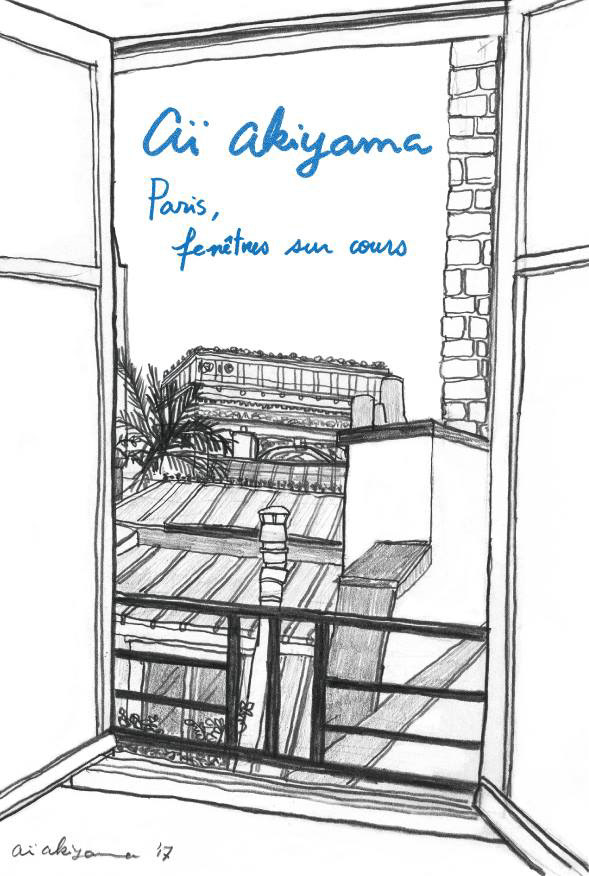 aï akiyama
Paris,
fenêtres sur cours
aï akiyama '17